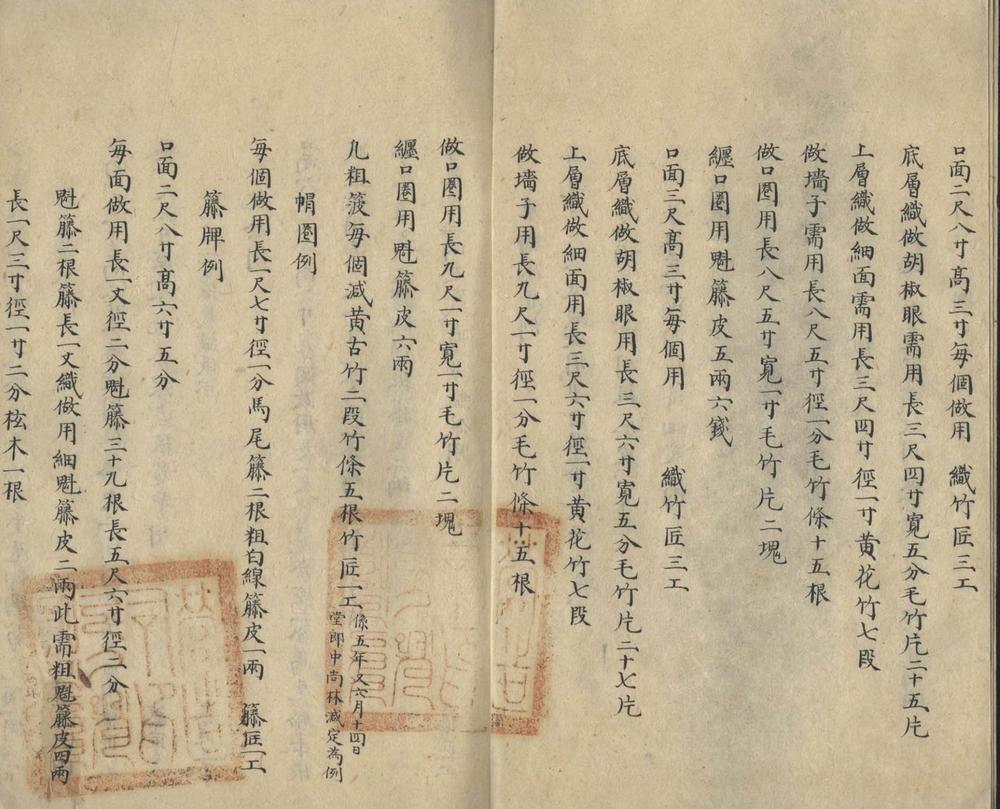 口面二尺八寸高三寸每個做用　織竹匠三工
底層織做胡椒眼需用長三尺四寸寬五分毛竹片二十五片
上層織做細面需用長三尺四寸徑一寸黄花竹七段
做墻子需用長八尺五寸徑一分毛竹條十五根
做口圏用長八尺五寸寬一寸毛竹片二塊
纒口圏用魁籐皮五兩六錢
口面三尺高三寸每個用　織竹匠三工
底層織做胡椒眼用長三尺六寸寬五分毛竹片二十七片
上層織做細面用長三尺六寸徑一寸黄花竹七段
做墻子用長九尺一寸徑一分毛竹條十五根
做口圏用長九尺一寸寬一寸毛竹片二塊
纒口圏用魁籐皮六兩
凡粗筏每個減黄古竹二段竹條五根竹匠一工
係五年又六月十四日
堂郎中尚林減定為例
帽圏例
每個做用長一尺七寸徑一分馬尾籐二根粗白線籐皮一兩　籐匠一工
籐牌例
口面二尺八寸高六寸五分
每面做用長一丈徑二分魁籐三十九根長五尺六寸徑二分
魁籐二根籐長一丈織做用細魁籐皮二兩此需粗魁籐皮四兩
長一尺三寸徑一寸二分柱木一根